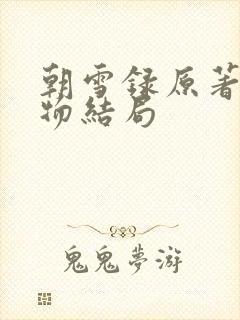 朝雪録原著
物結局
鬼鬼夢游